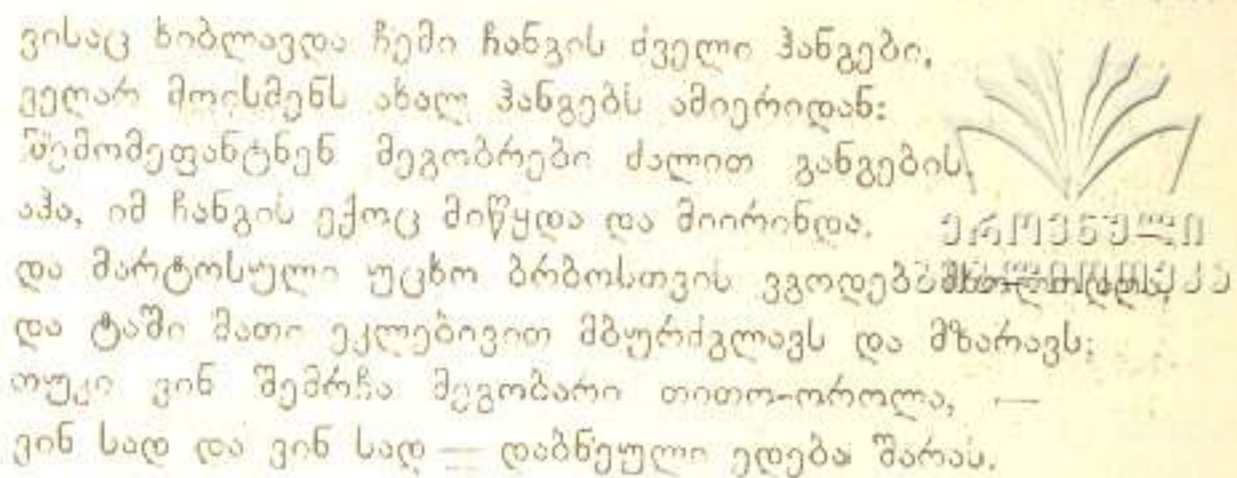 ვისაც ხიბლავდა ჩემი ჩანგის ძველი ჰანგები,
ვეღარ მოისმენს ახალ ჰანგებს ამიერიდან:
შემომეფანტნენ მეგობრები ძალით განგების,
აჰა, იმ ჩანგის ექოც მიწყდა და მიირინდა.
ეროვნული
და მარტოსული უცხო ბრბოსთვის ვგოდებ
ბიბლიოთეკა
და ტაში მათი ეკლებივით მბურძგლავს და მზარავს;
თუკი ვინ შემრჩა მეგობარი თითო-ოროლა, —
ვინ სად და ვინ სად — დაბნეული ედება შარას.